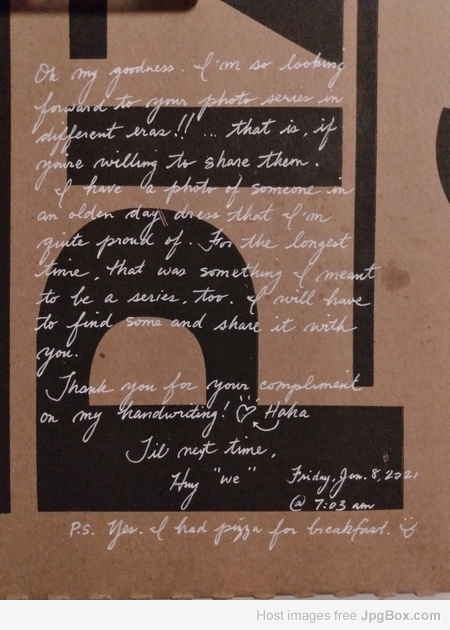 Oh my goodness. I'm so looking
forward to your photo series in
different eras!! ... that is, if
you're willing to share them.
I have a photo of someone in
an olden day dress that I'm
quite proud of. For the longest
time, that was something I meant
to be a series, too. I will have
to find some and share it with
you.
Thank you for your compliment
on my handwriting! ♡ Haha
Til next time,
Huy "we"
Friday, Jan. 8, 2021
@ 7:03 am
P.S. Yes. I had pizza for breakfast.
Host images free JpgBox.com